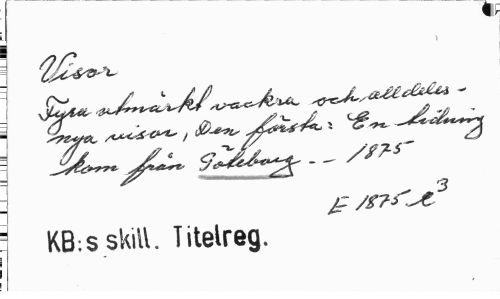 Visor
Fyra utmärkt vackra och alldeles-
nya visor, Den första: En tidning
kom från Göteborg -- 1875
E 1875 e3
KB:s skill. Titelreg.